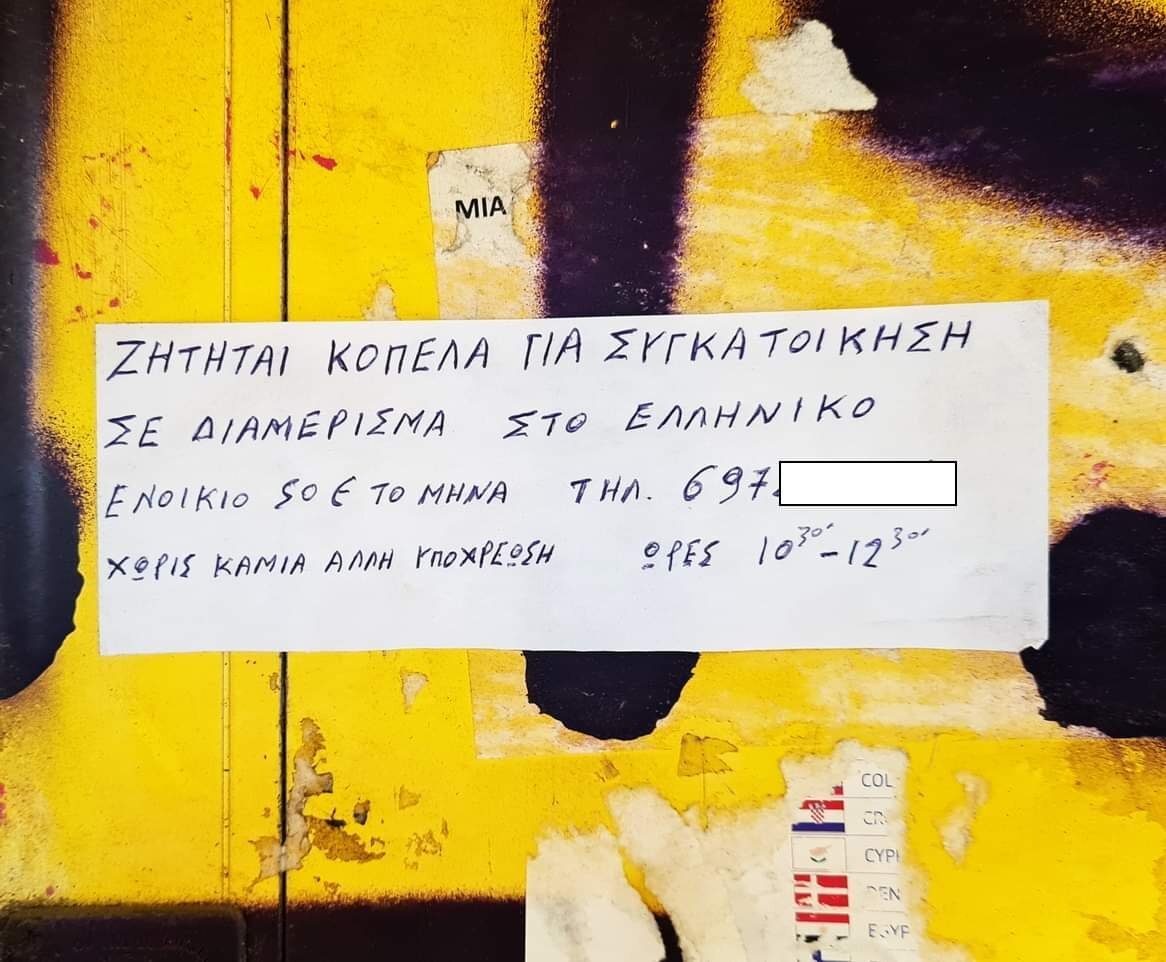 ΜΙΑ
ΖΗΤΗΤΑΙ ΚΟΠΕΛΑ ΓΙΑ ΣΥΓΚΑΤΟΙΚΗΣΗ
ΣΕ ΔΙΑΜΕΡΙΣΜΑ ΣΤΟ ΕΛΛΗΝΙΚΟ
ΕΝΟΙΚΙΟ 50 € ΤΟ ΜΗΝΑ ΤΗΛ. 697
ΧΩΡΙΣ ΚΑΜΙΑ ΑΛΛΗ ΥΠΟΧΡΕΩΣΗ ΩΡΕΣ 10³⁰′-12³⁰′
COL
CR
CYP
DEN
EGYP